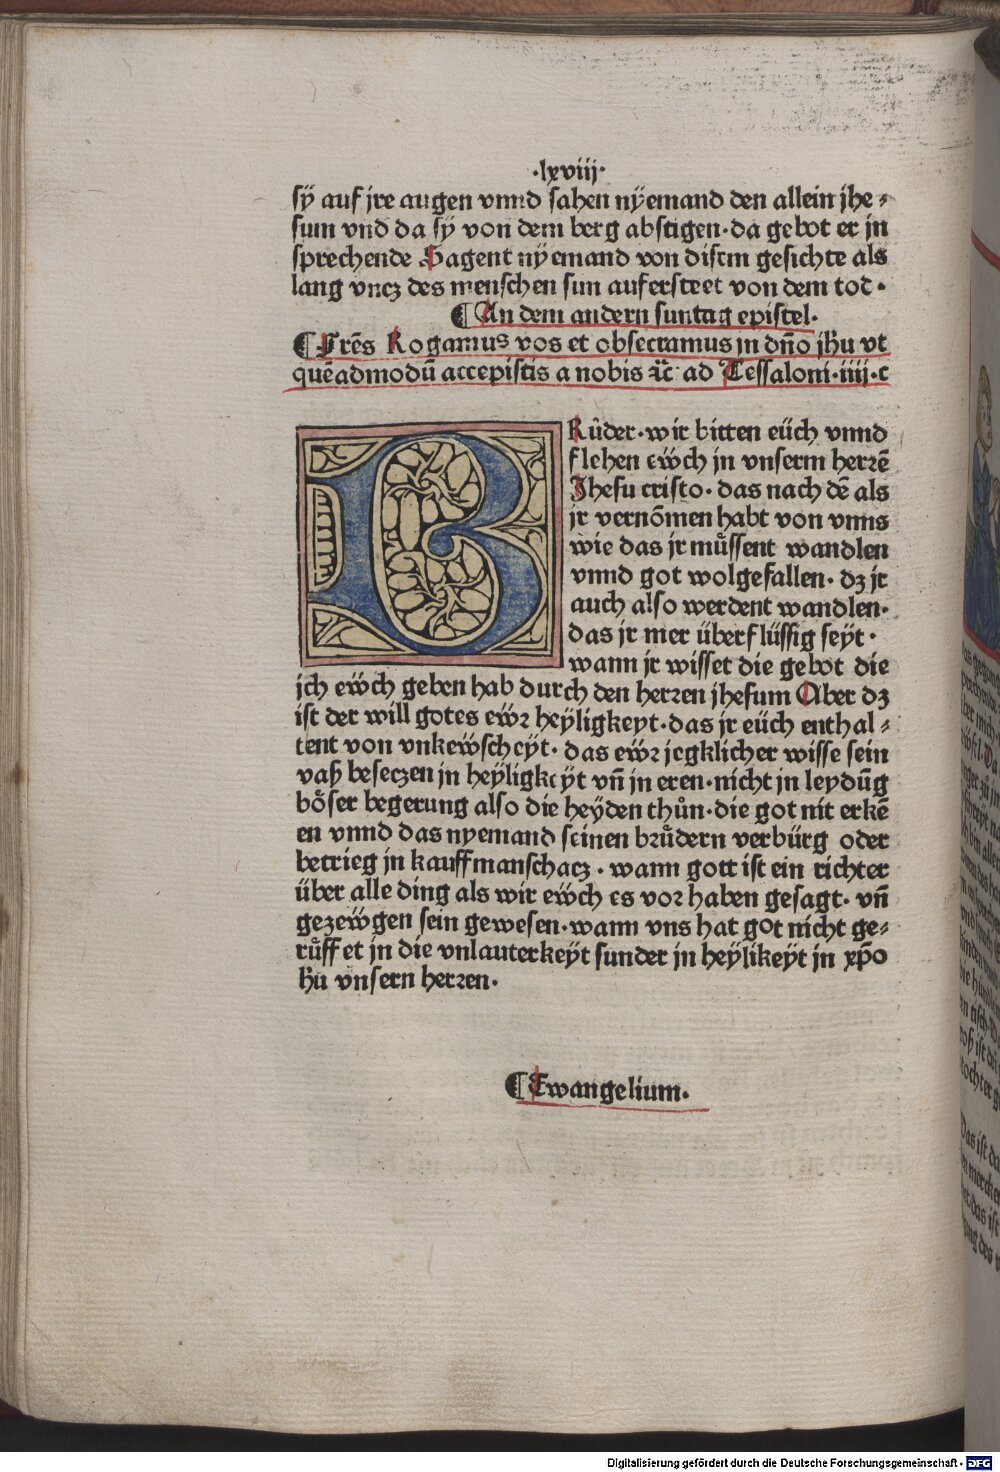 ·lxviij·
sÿ auf jre augen vnnd sahen nÿemand den allein jhe⸗
sum vnd da sÿ von dem berg abstigen·da gebot er jn
sprechende Sagent nÿemand von disem gesichte als
lang vncz des menschen sun aufersteet von dem tod·
¶ An dem andern suntag epistel·
¶ Frēs Rogamus vos et obsecramus jn dño jhu vt
quēadmodū accepistis a nobis ꝛc̄ ad Tessaloni·iiij·c
BRůder·wir bitten eüch vnnd
flehen ewch in vnserm herrē
Jhesu cristo·das nach dē als
jr vernōmen habt von vnns
wie das jr müssent wandlen
vnnd got wolgefallen·dz jr
auch also werdent wandlen·
das jr mer überflüssig seÿt·
wann jr wisset die gebot die
jch eẅch geben hab durch den herren jhesum Aber dz
ist der will gotes eẅꝛ heÿligkeyt·das jr eüch enthal⸗
tent von vnkeẅscheÿt·das eẅꝛ jegklicher wisse sein
vaß beseczen jn heÿligkeÿt vñ jn eren·nicht jn leydūg
böser begerung also die heÿden thůn·die got nit erkē
en vnnd das nyemand seinen brůdern verbürg oder
betrieg jn kauffmanschacz·wann gott ist ein richter
über alle ding als wir eẅch es voꝛ haben gesagt·vñ
gezeẅgen sein gewesen·wann vns hat got nicht ge⸗
rüffet jn die vnlauterkeyt sunder jn heÿlikeÿt jn xp̄o
jhu vnsern herꝛen·
¶ Ewangelium·
Digitalisierung gefördert durch die Deutsche Forschungsgemeinschaft - DFG